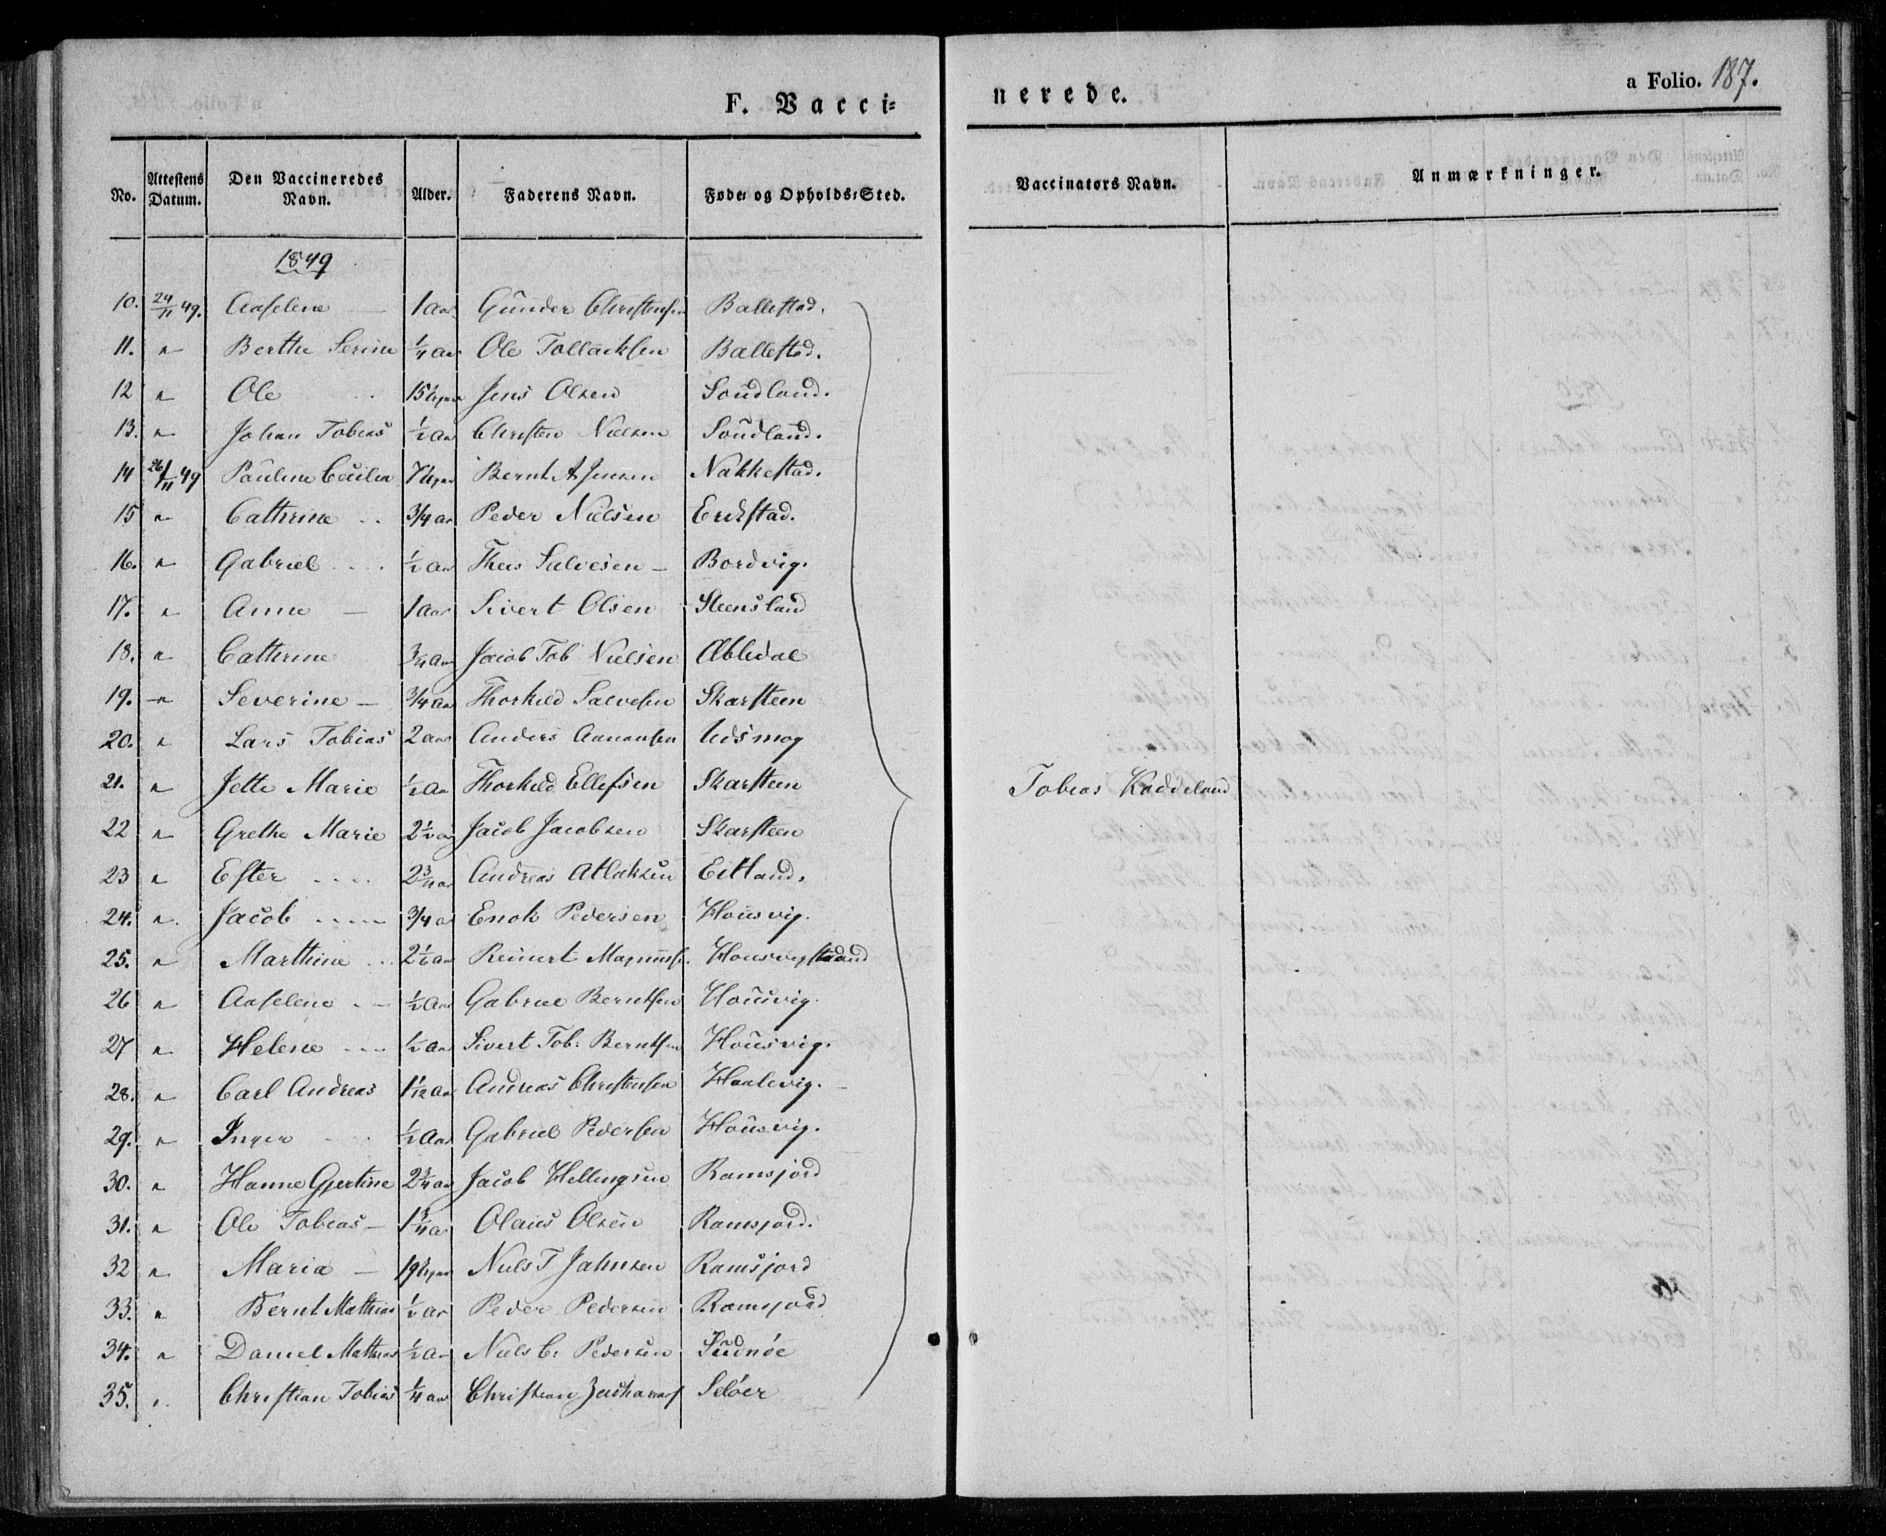 F. Vacci=
nerede.
a Folio. 187.
No. Attestens Datum. Den Vaccineredes Navn. Alder. Faderens Navn. Føde- og Opholds-Sted. Vaccinators Navn. Anmærkninger.
1849
10. 24/11 49. Aaselene — 1 Aar Gunder Christensen Ballestad.
11. " Berthe Serine 1/4 aar Ole Tollacksen Ballestad.
12 " Ole 15 Uger Jens Olsen Soudland.
13. " Johan Tobias 1/2 Aar Christen Nielsen Soudland.
14 26/11 49 Pauline Cecilia 7 Uger Bernt A Jensen Nakkestad.
15 " Cathrine 3/4 ar Peder Nielsen Erikstad.
16. " Gabriel 1/2 Aar Theis Salvesen — Bordvig.
17. " Anne — 1 Aar Sivert Olsen Steensland
18. " Cathrine 3/4 Aar Jacob Tob Nielsen Abledal
19. " Severine — 3/4 Aar Thorkild Salvesen Skarsteen
20. " Lars Tobias 2 aar Anders Aanensen Udsmog
21. " Jette Marie 1/2 Aar Thorkild Ellefsen Skarsteen
22 " Grethe Marie 2 1/2 ar Jacob Jacobsen Skarsteen
23 " Ester 2 3/4 ar Andreas Atlaksen Eitland.
24. " Jacob 3/4 a Enok Pedersen Housvig.
25. " Marthine 2 1/2 aar Reinert Magnuss. Housvigstrand
26 " Aaselene 1/2 Aar Gabriel Berntsen Housvig.
27 " Helene 1/2 Aar Sivert Tob: Berntsen Housvig.
28. " Carl Andreas 1 1/12 Aar Andreas Christensen Haalevig.
29. " Inger 1/2 Aar Gabriel Pedersen Housvig.
30. " Hanne Gjertine 2 3/4 ar Jacob Hellingsen Ramsjord
31. " Ole Tobias — 1 3/4 ar Olaus Olsen Ramsjord.
32 " Maria — 19 Uger Niels T Jahnsen Ramsjord
33. " Bernt Mathias 1/2 ar Peder Pedersen Ramsjord
34. " Daniel Mathias 1/2 Aar Niels C. Pedersen Sudnöe
35. " Christian Tobias 1/4 aar Christian Zachariass Selöer
Tobias Kaddeland